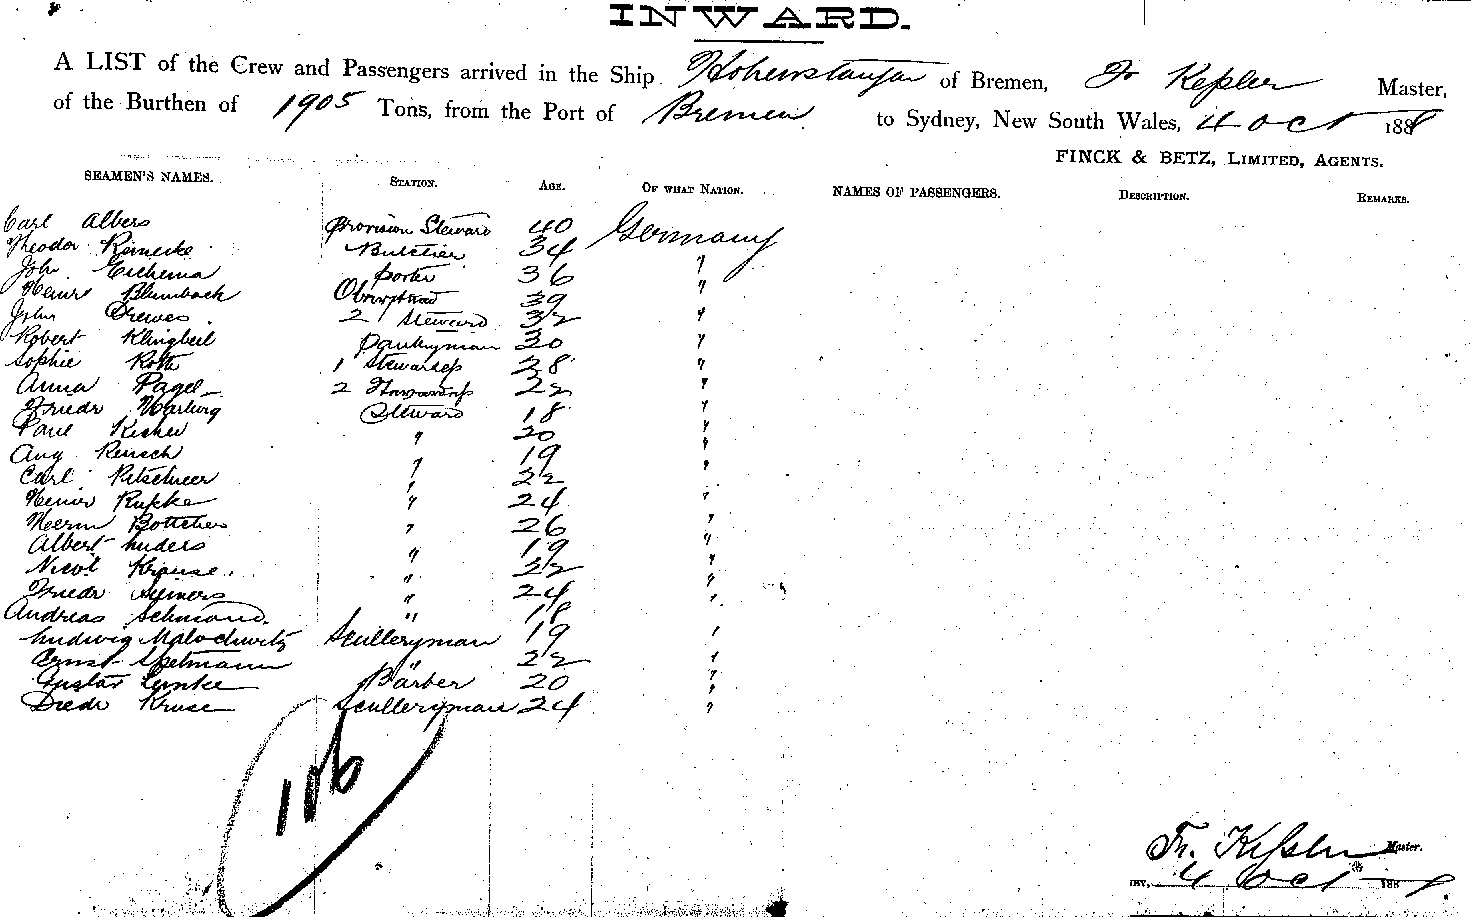 INWARD.
A LIST of the Crew and Passengers arrived in the Ship Hohenstaufen of Bremen, Fr Kepler Master,
of the Burthen of 1905 Tons, from the Port of Bremen to Sydney, New South Wales, 4 Oct 188
FINCK & BETZ, LIMITED, AGENTS.
SEAMEN'S NAMES. STATION. AGE. OF WHAT NATION. NAMES OF PASSENGERS. DESCRIPTION. REMARKS.
Carl Albers provision Steward 40 Germany
Theodor Reinecke 34 "
John porter 36 "
Blumbach 39
John Drewes 2 Steward 32 "
Robert Klingbeil Pantryman 30 "
Sophie Roth 1 Stewardess 28 "
Anna Pagel 2 22 "
Friedr Warburg Steward 18 "
Paul " 20 "
Aug Rensch " 19 "
Carl " 22 "
Rupke " 24 "
Herm Bottcher " 26 "
Albert Luders " 19 "
Nicol Krause " 22 "
Friedr " 24 "
Andreas " 18
Ludwig Sculleryman 19 "
Ernst 22 "
Gustav Lemke Bärber 20 "
Diedr Kruse Sculleryman 24 "
106
Fr. Keßler Master.
4 Oct 188